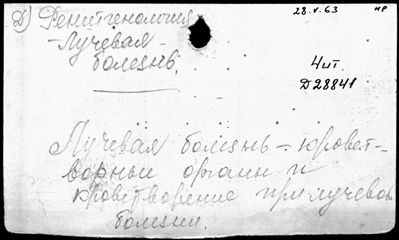 2) Рентгенология
28.V.63 нр
-Лучевая-
болезнь.
4ит.
D28841
Лучевая болезнь - кровет-
ворный орган и
кроветворение при лучевой
болезни.